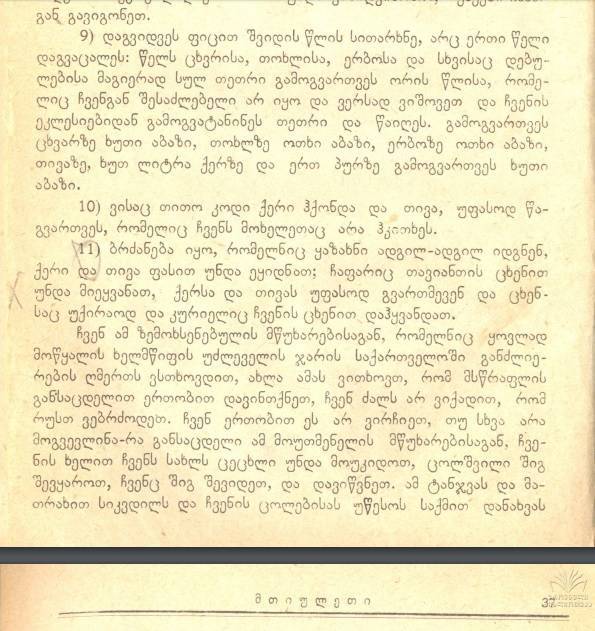 გან გავიგონეთ.
9) დაგვიდვეს ფიცით შვიდის წლის სითარხნე, არც ერთი წელი
დაგვაცალეს: წელს ცხვრისა, თოხლისა, ერბოსა და სხვისაც დებუ-
ლებისა მაგიერად სულ თეთრი გამოგვართვეს ორის წლისა, რომე-
ლიც ჩვენგან შესაძლებელი არ იყო და ვერსად ვიშოვეთ და ჩვენის
ეკლესიებიდან გამოგვატანინეს თეთრი და წაიღეს. გამოგვართვეს
ცხვარზე ხუთი აბაზი, თოხლზე ოთხი აბაზი, ერბოზე ოთხი აბაზი,
თივაზე, ხუთ ლიტრა ქერზე და ერთ პურზე გამოგვართვეს ხუთი
აბაზი.
10) ვისაც თითო კოდი ქერი ჰქონდა და თივა, უფასოდ წა-
გვართვეს, რომელიც ჩვენს მოხელეთაც არა ჰკითხეს.
11) ბრძანება იყო, რომელნიც ყაზახნი ადგილ-ადგილ იდგნენ,
ქერი და თივა ფასით უნდა ეყიდნათ; ჩაფარიც თავიანთის ცხენით
უნდა მიეყვანათ, ქერსა და თივას უფასოდ გვართმევენ და ცხენ-
საც უქირაოდ და კურიელიც ჩვენის ცხენით დაჰყვანდათ.
ჩვენ ამ ზემოხსენებულის მწუხარებისაგან, რომელნიც ყოვლად
მოწყალის ხელმწიფის უძლეველის ჯარის საქართველოში განძლიე-
რების ღმერთს ვსთხოვდით, ახლა ამას ვითხოვთ, რომ მსწრაფლის
განსაცდელით ერთობით დავინთქნეთ, ჩვენ ძალს არ ვიქადით, რომ
რუსთ ვებრძოდეთ. ჩვენ ერთობით ეს არ ვირჩიეთ, თუ სხვა არა
მოგვევლინა-რა განსაცდელი ამ მოუთმენელის მწუხარებისაგან, ჩვე-
ნის ხელით ჩვენს სახლს ცეცხლი უნდა მოუკიდოთ, ცოლშვილი შიგ
შევყაროთ, ჩვენც შიგ შევიდეთ, და დავიწვნეთ. ამ ტანჯვას და მა-
თრახით სიკვდილს და ჩვენის ცოლებისას უწესოს საქმით დანახვას
მთიულეთი
37